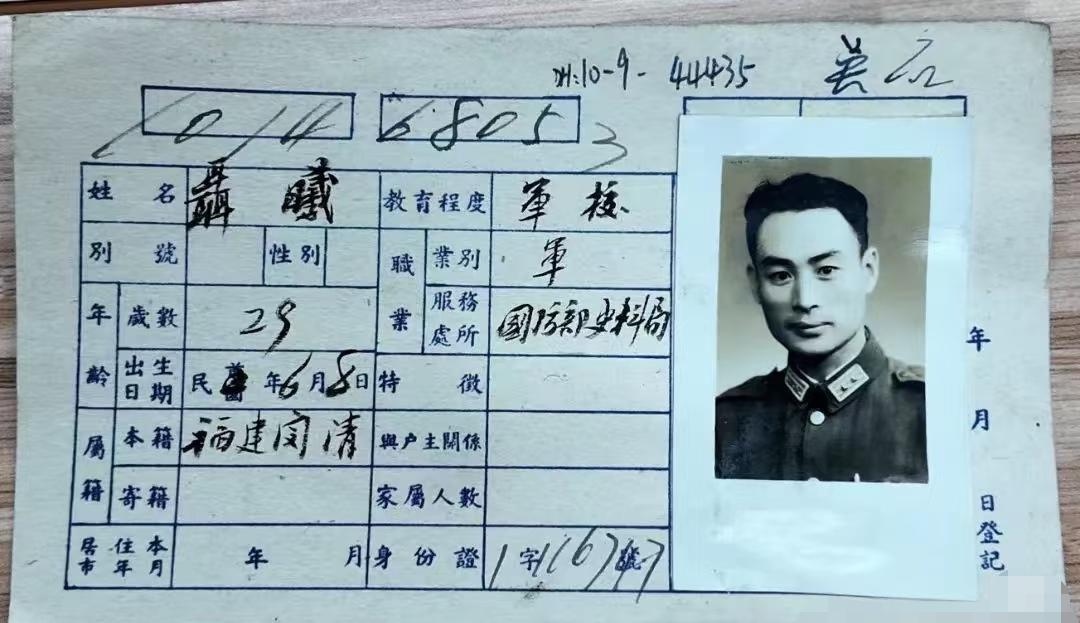 10-9- 44435
1014 6805 3
姓名 聶曦 教育程度 軍校
別號 性別 職業 業別 軍
年齡 歲數 29 服務處所 國防部史料局
出生日期 民 年6月8日 特徵
屬籍 本籍 福建闽清 與户主關係
寄籍 家屬人數
居住本市年月 年 月 身份證 字 號
年 月 日登記